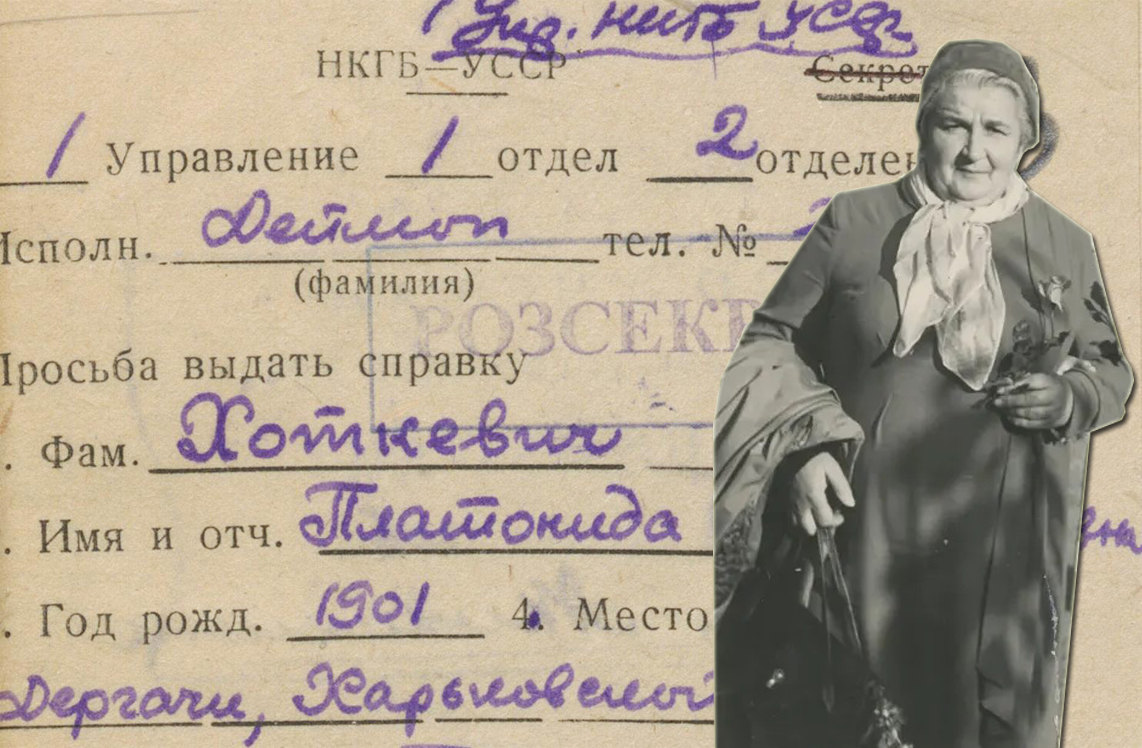 Упр. НКГБ УССР
НКГБ—УССР
Секрет
1 Управление 1 отдел 2 отделен
Исполн. Деймоп тел. №
(фамилия)
РОЗСЕКР
Просьба выдать справку
. Фам. Хоткевич
. Имя и отч. Платонида вна
. Год рожд. 1901 4. Место
Дергачи, Харьковской